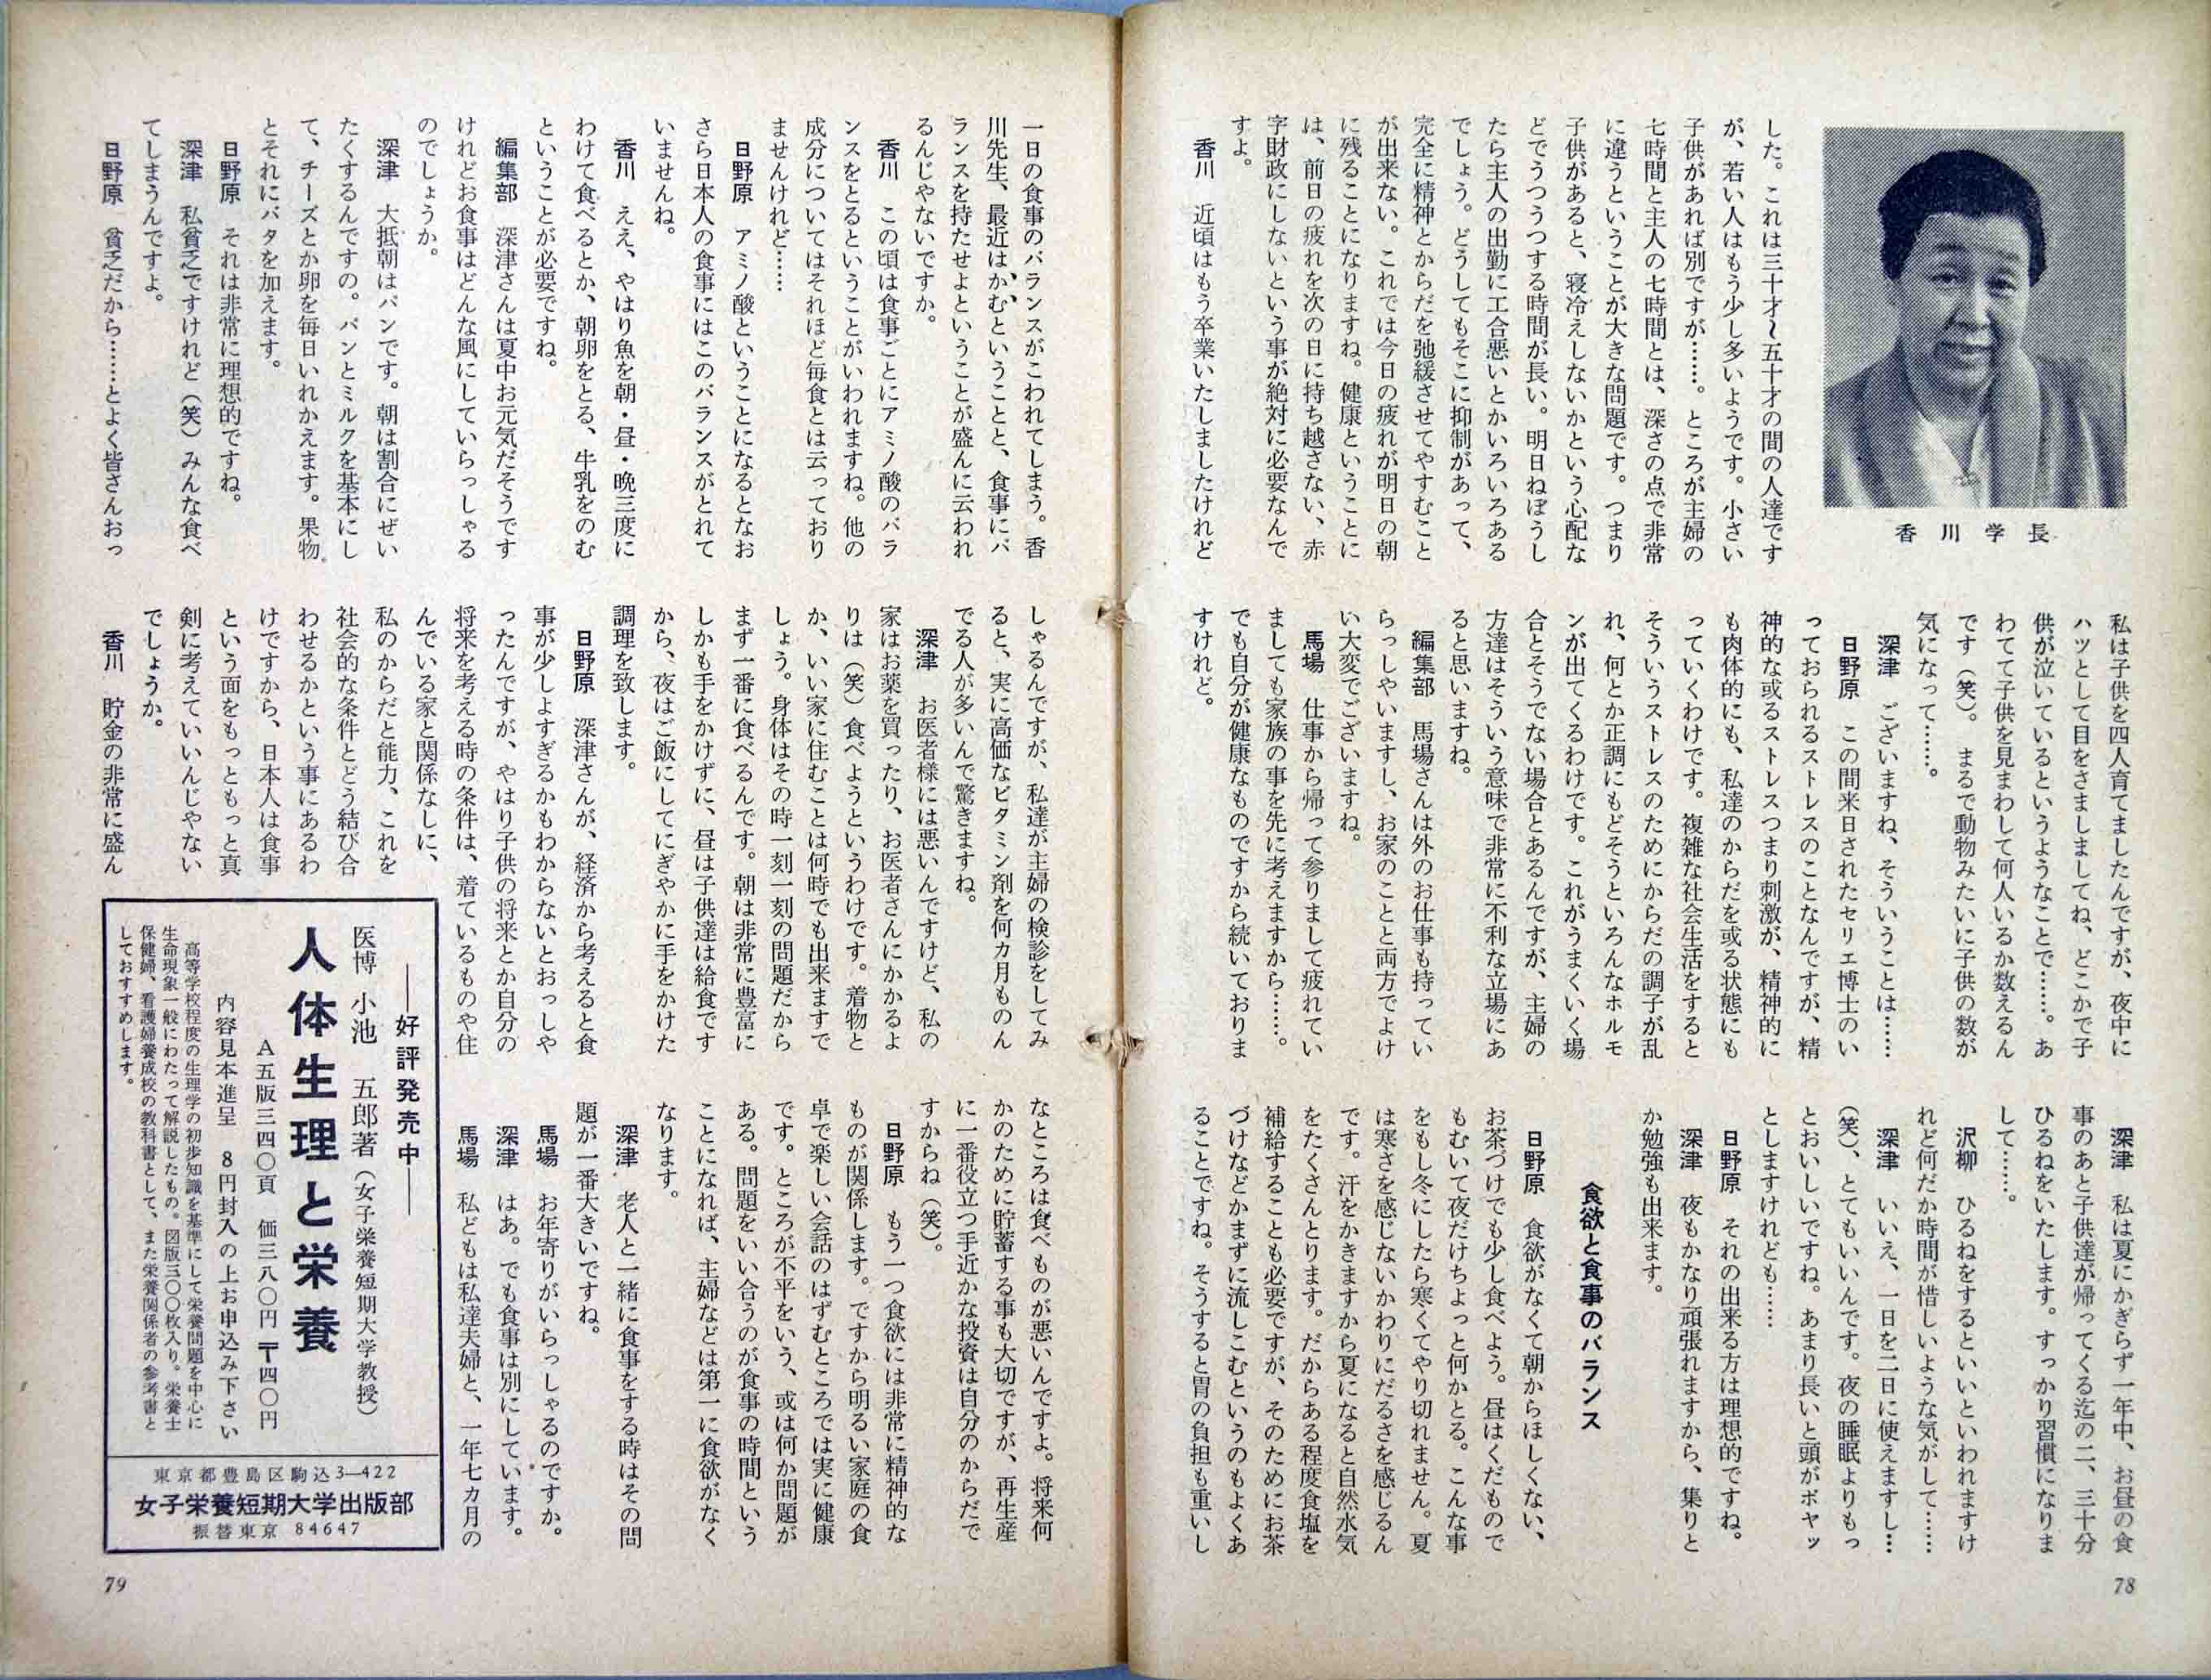 香川学長
した。これは三十才〜五十才の間の人達です
が、若い人はもう少し多いようです。小さい
子供があれば別ですが……。ところが主婦の
七時間と主人の七時間とは、深さの点で非常
に違うということが大きな問題です。つまり
子供があると、寝冷えしないかという心配な
どでうつうつする時間が長い。明日ねぼうし
たら主人の出勤に工合悪いとかいろいろある
でしょう。どうしてもそこに抑制があって、
完全に精神とからだを弛緩させてやすむこと
が出来ない。これでは今日の疲れが明日の朝
に残ることになりますね。健康ということに
は、前日の疲れを次の日に持ち越さない、赤
字財政にしないという事が絶対に必要なんで
すよ。
香川　近頃はもう卒業いたしましたけれど
私は子供を四人育てましたんですが、夜中に
ハッとして目をさましましてね、どこかで子
供が泣いているというようなことで……。あ
わてて子供を見まわして何人いるか数えるん
です（笑）。まるで動物みたいに子供の数が
気になって……。
深津　ございますね、そういうことは……
日野原　この間来日されたセリエ博士のい
っておられるストレスのことなんですが、精
神的な或るストレスつまり刺激が、精神的に
も肉体的にも、私達のからだを或る状態にも
っていくわけです。複雑な社会生活をすると
そういうストレスのためにからだの調子が乱
れ、何とか正調にもどそうといろんなホルモ
ンが出てくるわけです。これがうまくいく場
合とそうでない場合とあるんですが、主婦の
方達はそういう意味で非常に不利な立場にあ
ると思いますね。
編集部　馬場さんは外のお仕事も持ってい
らっしゃいますし、お家のことと両方でよけ
い大変でございますね。
馬場　仕事から帰って参りまして疲れてい
ましても家族の事を先に考えますから……。
でも自分が健康なものですから続いておりま
すけれど。
深津　私は夏にかぎらず一年中、お昼の食
事のあと子供達が帰ってくる迄の二、三十分
ひるねをいたします。すっかり習慣になりま
して……。
沢柳　ひるねをするといいといわれますけ
れど何だか時間が惜しいような気がして……
深津　いいえ、一日を二日に使えますし…
（笑）、とてもいいんです。夜の睡眠よりもっ
とおいしいですね。あまり長いと頭がボヤッ
としますけれども……
日野原　それの出来る方は理想的ですね。
深津　夜もかなり頑張れますから、集りと
か勉強も出来ます。
食欲と食事のバランス
日野原　食欲がなくて朝からほしくない、
お茶づけでも少し食べよう。昼はくだもので
もむいて夜だけちょっと何かとる。こんな事
をもし冬にしたら寒くてやり切れません。夏
は寒さを感じないかわりにだるさを感じるん
です。汗をかきますから夏になると自然水気
をたくさんとります。だからある程度食塩を
補給することも必要ですが、そのためにお茶
づけなどかまずに流しこむというのもよくあ
ることですね。そうすると胃の負担も重いし
78
一日の食事のバランスがこわれてしまう。香
川先生、最近はかむということと、食事にバ
ランスを持たせよということが盛んに云われ
るんじゃないですか。
香川　この頃は食事ごとにアミノ酸のバラ
ンスをとるということがいわれますね。他の
成分についてはそれほど毎食とは云っており
ませんけれど……
日野原　アミノ酸ということになるとなお
さら日本人の食事にはこのバランスがとれて
いませんね。
香川　ええ、やはり魚を朝・昼・晩三度に
わけて食べるとか、朝卵をとる、牛乳をのむ
ということが必要ですね。
編集部　深津さんは夏中お元気だそうです
けれどお食事はどんな風にしていらっしゃる
のでしょうか。
深津　大抵朝はパンです。朝は割合にぜい
たくするんですの。パンとミルクを基本にし
て、チーズとか卵を毎日いれかえます。果物
とそれにバタを加えます。
日野原　それは非常に理想的ですね。
深津　私貧乏ですけれど（笑）みんな食べ
てしまうんですよ。
日野原　貧乏だから……とよく皆さんおっ
しゃるんですが、私達が主婦の検診をしてみ
ると、実に高価なビタミン剤を何カ月ものん
でる人が多いんで驚きますね。
深津　お医者様には悪いんですけど、私の
家はお薬を買ったり、お医者さんにかかるよ
りは（笑）食べようというわけです。着物と
か、いい家に住むことは何時でも出来ますで
しょう。身体はその時一刻一刻の問題だから
まず一番に食べるんです。朝は非常に豊富に
しかも手をかけずに、昼は子供達は給食です
から、夜はご飯にしてにぎやかに手をかけた
調理を致します。
日野原　深津さんが、経済から考えると食
事が少しよすぎるかもわからないとおっしゃ
ったんですが、やはり子供の将来とか自分の
将来を考える時の条件は、着ているものや住
んでいる家と関係なしに、
私のからだと能力、これを
社会的な条件とどう結び合
わせるかという事にあるわ
けですから、日本人は食事
という面をもっともっと真
剣に考えていいんじゃない
でしょうか。
香川　貯金の非常に盛ん
なところは食べものが悪いんですよ。将来何
かのために貯蓄する事も大切ですが、再生産
に一番役立つ手近かな投資は自分のからだで
すからね（笑）。
日野原　もう一つ食欲には非常に精神的な
ものが関係します。ですから明るい家庭の食
卓で楽しい会話のはずむところでは実に健康
です。ところが不平をいう、或は何か問題が
ある。問題をいい合うのが食事の時間という
ことになれば、主婦などは第一に食欲がなく
なります。
深津　老人と一緒に食事をする時はその問
題が一番大きいですね。
馬場　お年寄りがいらっしゃるのですか。
深津　はあ。でも食事は別にしています。
馬場　私どもは私達夫婦と、一年七カ月の
――好評発売中――
医博　小池　五郎著（女子栄養短期大学教授）
人体生理と栄養
A五版三四〇頁　価三八〇円　〒四〇円
内容見本進呈　8円封入の上お申込み下さい
高等学校程度の生理学の初歩知識を基準にして栄養問題を中心に
生命現象一般にわたって解説したもの。図版三〇〇枚入り。栄養士
保健婦、看護婦養成校の教科書として、また栄養関係者の参考書と
しておすすめします。
東京都豊島区駒込3―422
女子栄養短期大学出版部
振替東京 84647
79